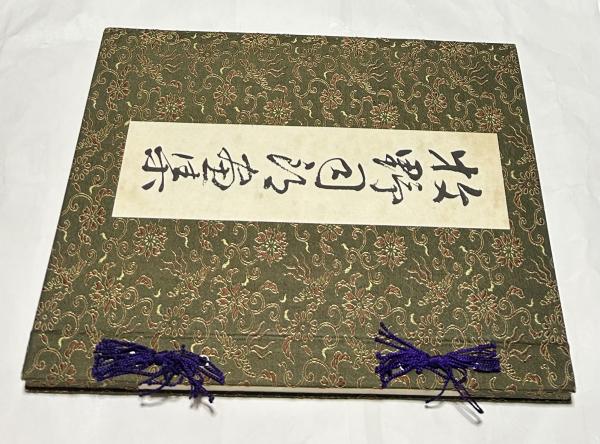 牧野司郎画集